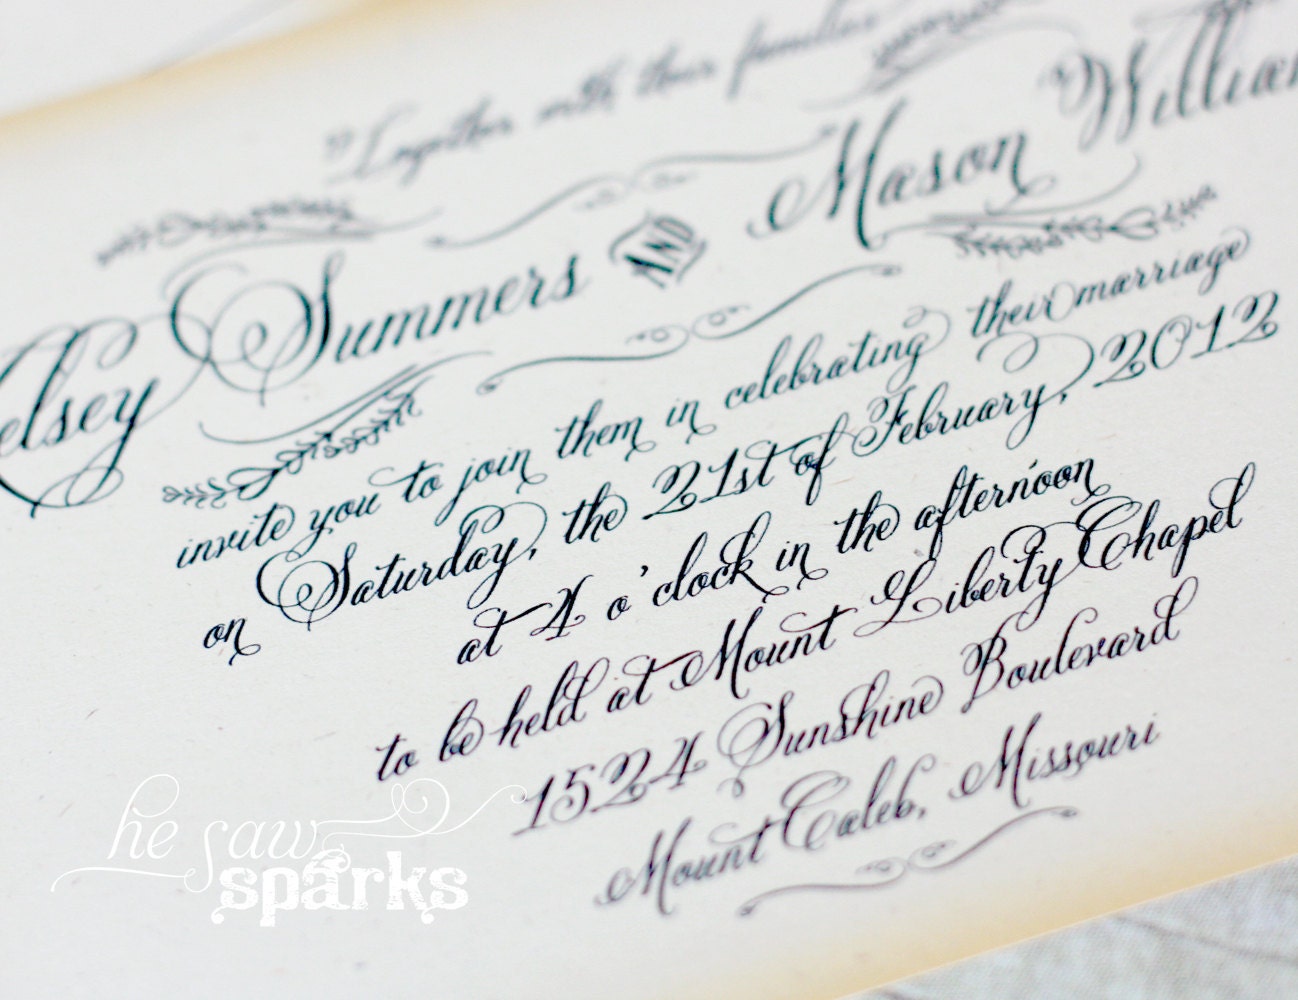 Together with their families
elsey Summers AND Mason William
invite you to join them in celebrating their marriage
on Saturday, the 21st of February, 2012
at 4 o'clock in the afternoon
to be held at Mount Liberty Chapel
1524 Sunshine Boulevard
Mount Caleb, Missouri
he saw
sparks